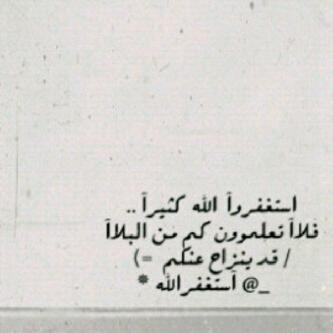 استغفروآ الله كثيرآ ..
فلاآ تعلموون كم من البلاآ
/ قد ينزاح عنكم =)
_@ آستغفرالله *